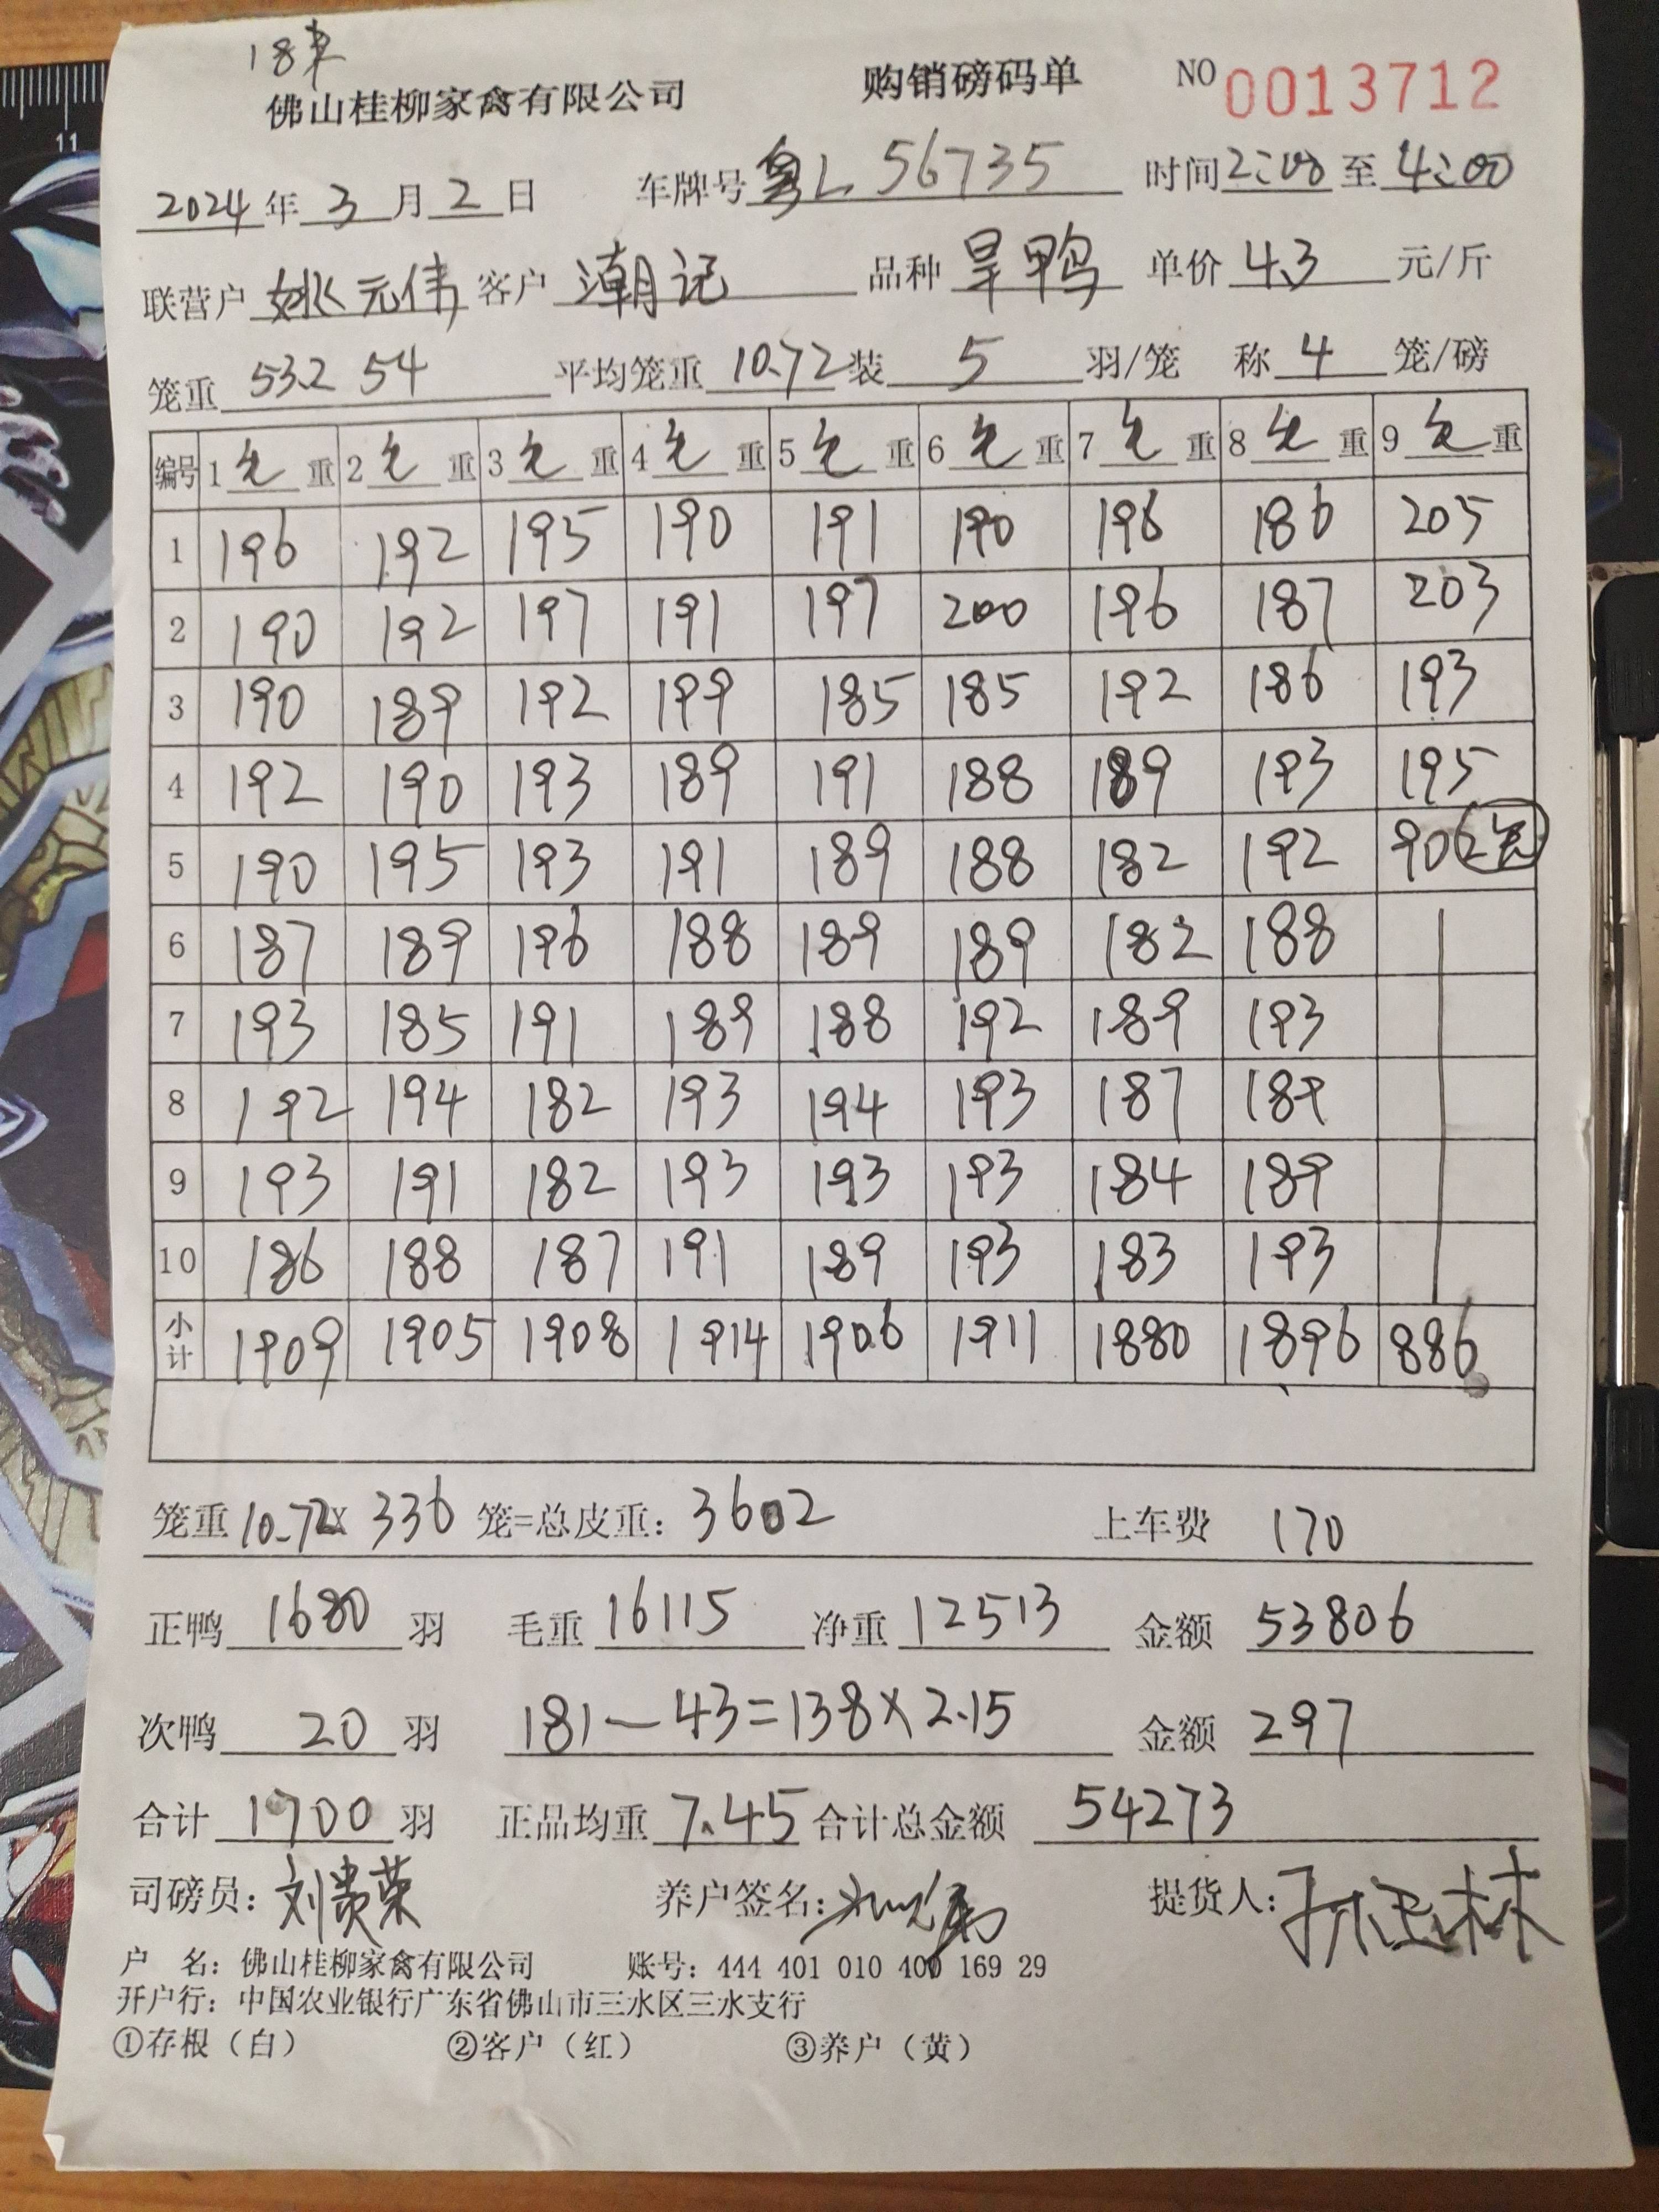 18来
佛山桂柳家禽有限公司 购销磅码单 NO 0013712
2024年3月2日 车牌号粤L 56735 时间2:00至4:00
联营户姚元伟 客户潮记 品种旱鸭 单价4.3元/斤
笼重53.2 54 平均笼重10.72装5羽/笼 称4笼/磅
编号 1 毛 重 2 毛 重 3 毛 重 4 毛 重 5 毛 重 6 毛 重 7 毛 重 8 毛 重 9 毛 重
1 196 192 195 190 191 190 196 186 205
2 190 192 197 191 197 200 196 187 203
3 190 189 192 199 185 185 192 186 193
4 192 190 193 189 191 188 189 193 195
5 190 195 193 191 189 188 182 192 90 2笼
6 187 189 196 188 189 189 182 188
7 193 185 191 189 188 192 189 193
8 192 194 182 193 194 193 187 189
9 193 191 182 193 193 193 184 189
10 186 188 187 191 189 193 183 193
小计 1909 1905 1908 1914 1906 1911 1880 1896 886
笼重10.72X 336 笼=总皮重:3602 上车费 170
正鸭1680羽 毛重16115 净重12513 金额53806
次鸭20羽 181-43=138×2.15 金额297
合计1700羽 正品均重7.45合计总金额54273
司磅员:刘贵荣 养户签名: 提货人:
户 名:佛山桂柳家禽有限公司 账号:444 401 010 400 169 29
开户行:中国农业银行广东省佛山市三水区三水支行
①存根(白) ②客户(红) ③养户(黄)
11